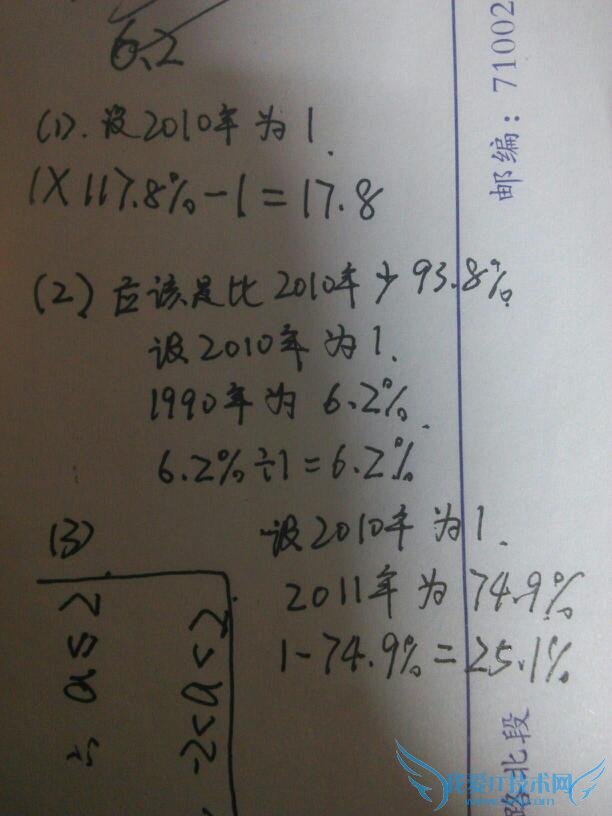 6.2
(1). 设2010年为1.
1×117.8%-1=17.8
(2) 应该是比2010年少93.8%.
设2010年为1.
1990年为 6.2%.
6.2%÷1=6.2%
(3)
设2010年为1.
2011年为74.9%
1-74.9%=25.1%
a≤2
-2<a<2
邮编：71002
路北段
我爱IT技术网